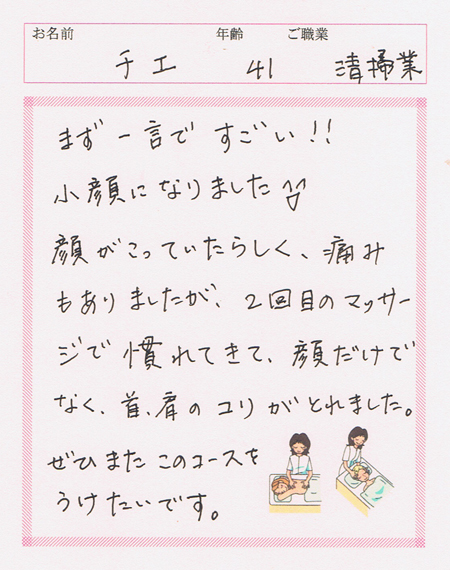 お名前 年齢 ご職業
チエ 41 清掃業
まず一言ですごい!!
小顔になりました
顔がこっていたらしく、痛み
もありましたが、2回目のマッサー
ジで慣れてきて、顔だけで
なく、首、肩のコリがとれました。
ぜひまたこのコースを
うけたいです。